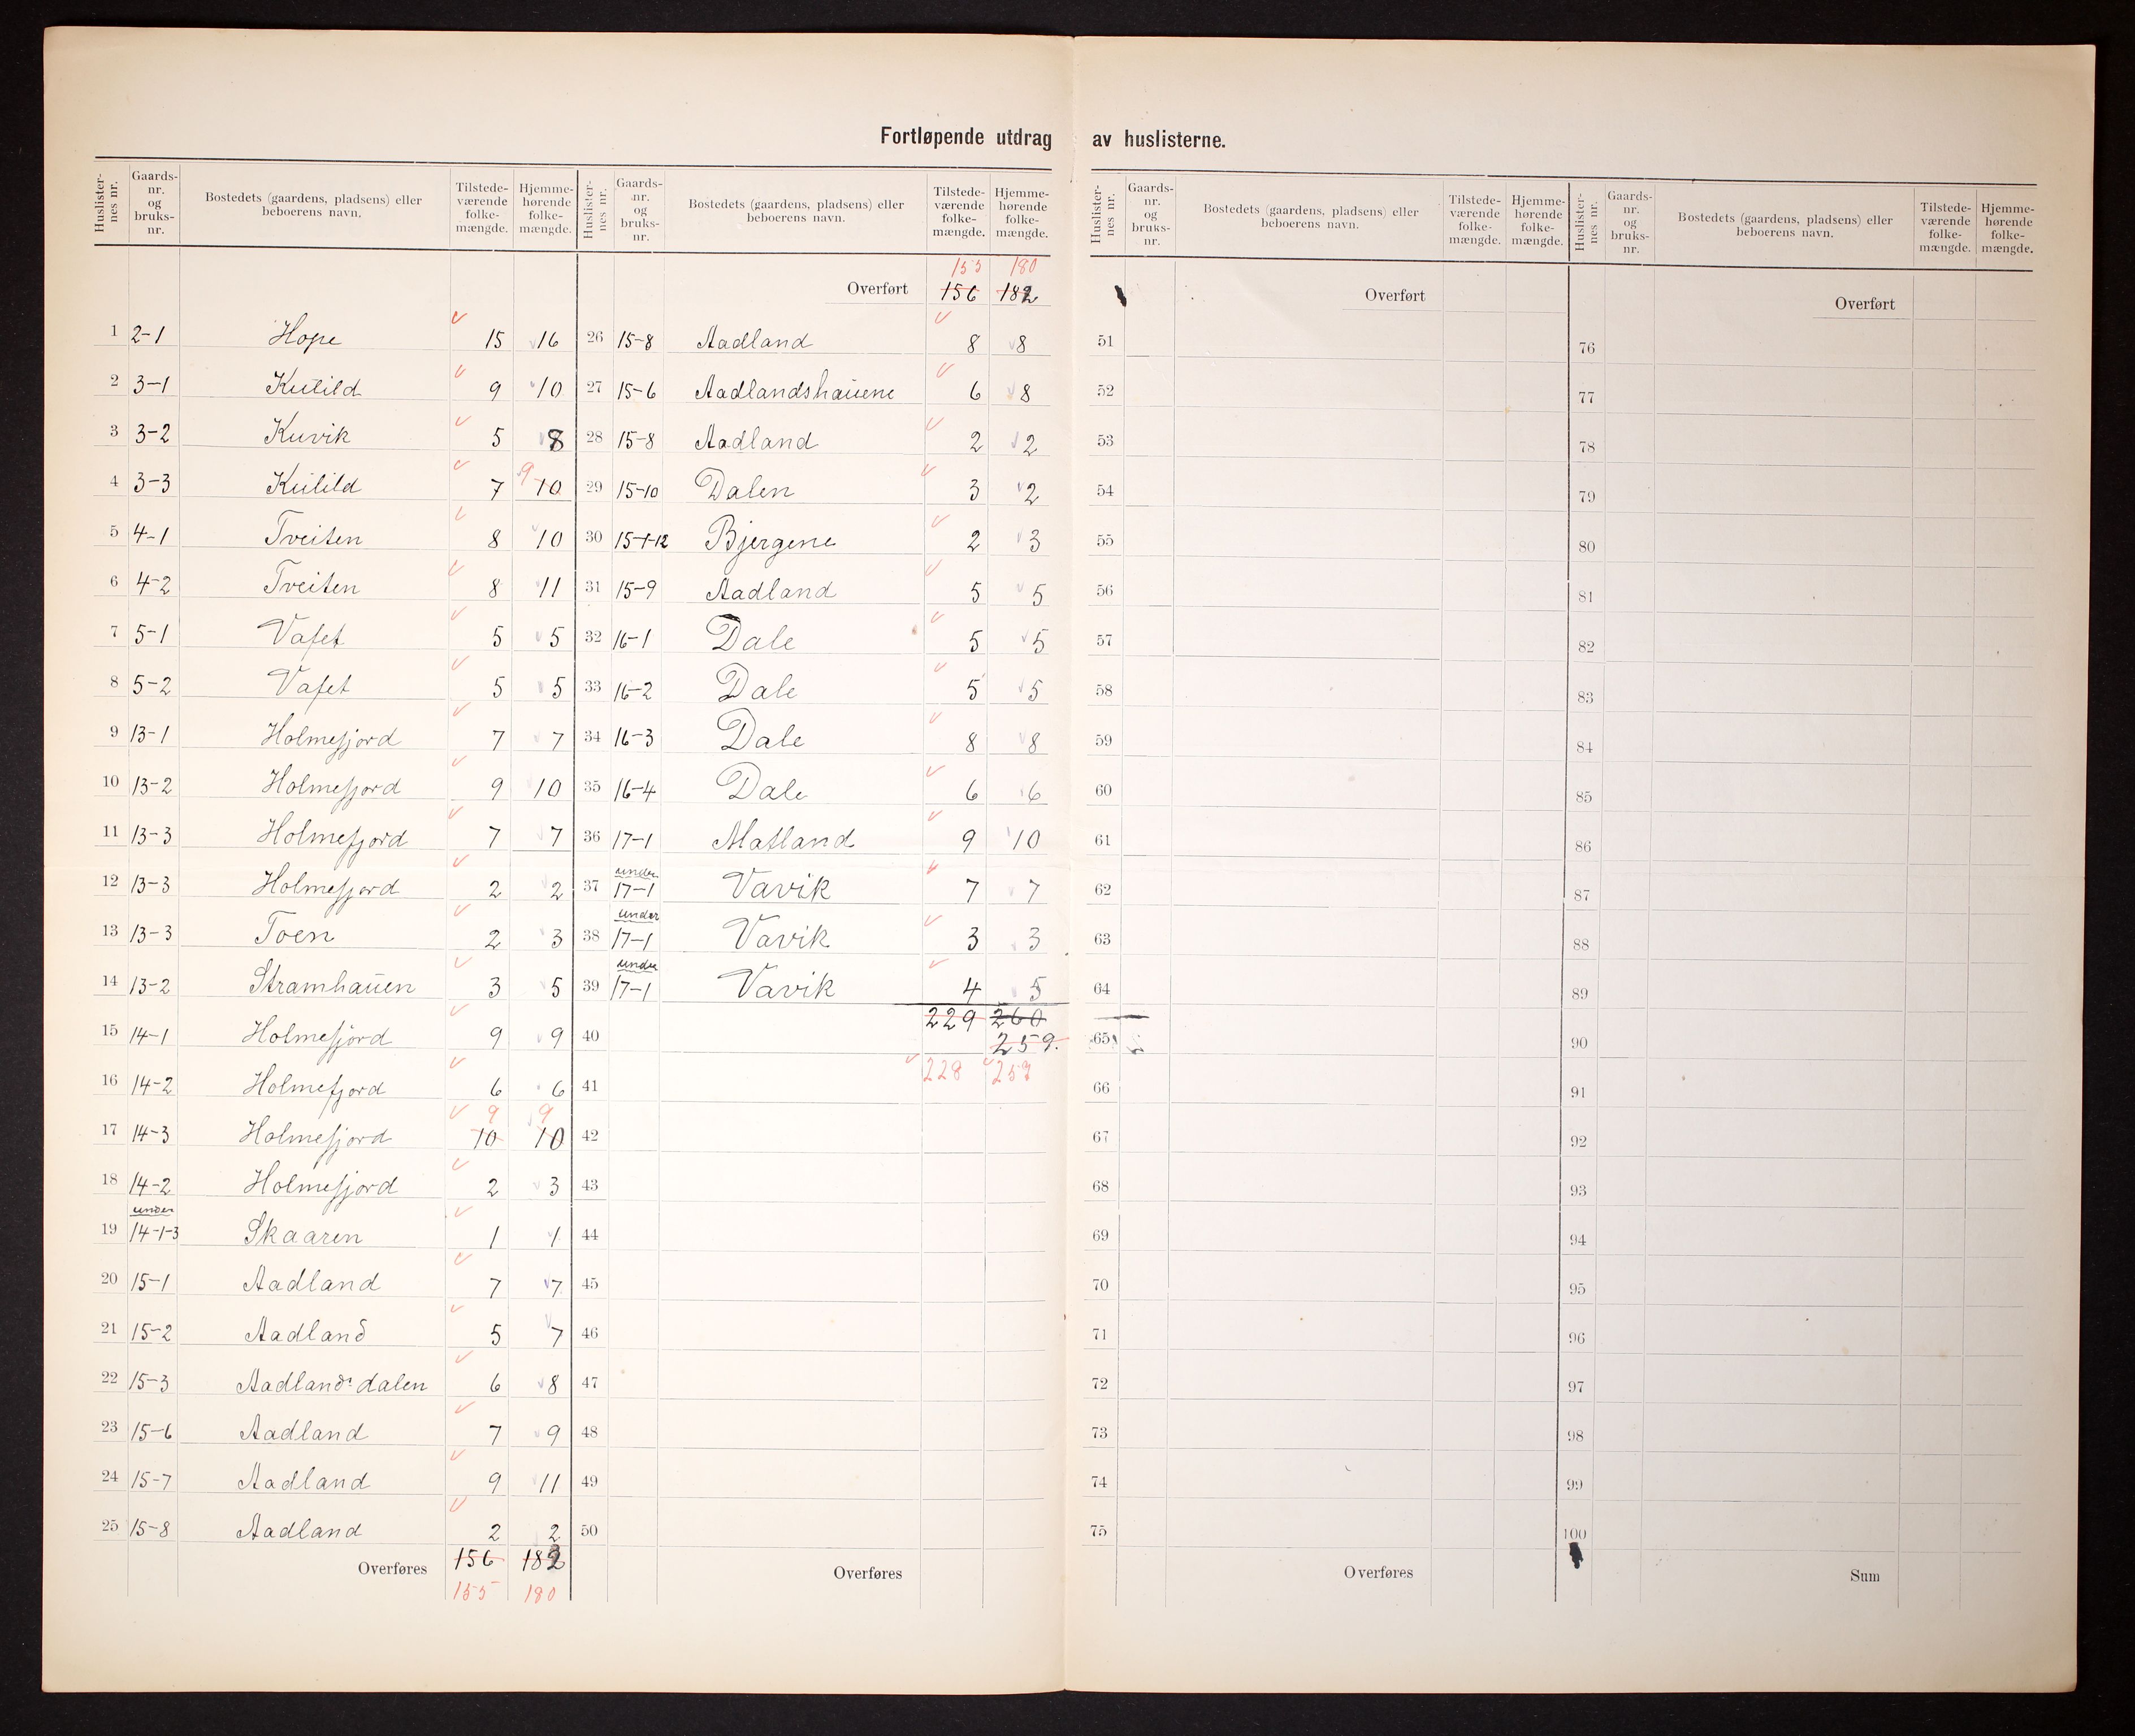 Fortløpende utdrag av huslisterne.
Huslister-nes nr. Gaards-nr. og bruks-nr. Bostedets (gaardens, pladsens) eller beboerens navn. Tilstede-værende folke-mængde. Hjemme-hørende folke-mængde.
1 2-1 Hope 15 16
2 3-1 Kulild 9 10
3 3-2 Kuvik 5 8
4 3-3 Kulild 7 9 10
5 4-1 Tveiten 8 10
6 4-2 Tveiten 8 11
7 5-1 Vaset 5 5
8 5-2 Vaset 5 5
9 13-1 Holmefjord 7 7
10 13-2 Holmefjord 9 10
11 13-3 Holmefjord 7 7
12 13-3 Holmefjord 2 2
13 13-3 Toen 2 3
14 13-2 Stramhauen 3 5
15 14-1 Holmefjord 9 9
16 14-2 Holmefjord 6 6
9 9
17 14-3 Holmefjord 10 10
18 14-2 Holmefjord 2 3
under
19 14-1-3 Skaaren 1 1
20 15-1 Aadland 7 7
21 15-2 Aadland 5 7
22 15-3 Aadlandsdalen 6 8
23 15-6 Aadland 7 9
24 15-7 Aadland 9 11
25 15-8 Aadland 2 2
Overføres 156 182
155 180
Huslister-nes nr. Gaards-nr. og bruks-nr. Bostedets (gaardens, pladsens) eller beboerens navn. Tilstede-værende folke-mængde. Hjemme-hørende folke-mængde.
155 180
Overført 156 182
26 15-8 Aadland 8 8
27 15-6 Aadlandshauene 6 8
28 15-8 Aadland 2 2
29 15-10 Dalen 3 2
30 15-1-12 Bjergene 2 3
31 15-9 Aadland 5 5
32 16-1 Dale 5 5
33 16-2 Dale 5 5
34 16-3 Dale 8 8
35 16-4 Dale 6 6
36 17-1 Matland 9 10
under
37 17-1 Vavik 7 7
under
38 17-1 Vavik 3 3
under
39 17-1 Vavik 4 5
229 260
40 259.
41 228 257
42
43
44
45
46
47
48
49
50
Overføres
Huslister-nes nr. Gaards-nr. og bruks-nr. Bostedets (gaardens, pladsens) eller beboerens navn. Tilstede-værende folke-mængde. Hjemme-hørende folke-mængde.
Overført
51
52
53
54
55
56
57
58
59
60
61
62
63
64
65
66
67
68
69
70
71
72
73
74
75
Overføres
Huslister-nes nr. Gaards-nr. og bruks-nr. Bostedets (gaardens, pladsens) eller beboerens navn. Tilstede-værende folke-mængde. Hjemme-hørende folke-mængde.
Overført
76
77
78
79
80
81
82
83
84
85
86
87
88
89
90
91
92
93
94
95
96
97
98
99
100
Sum